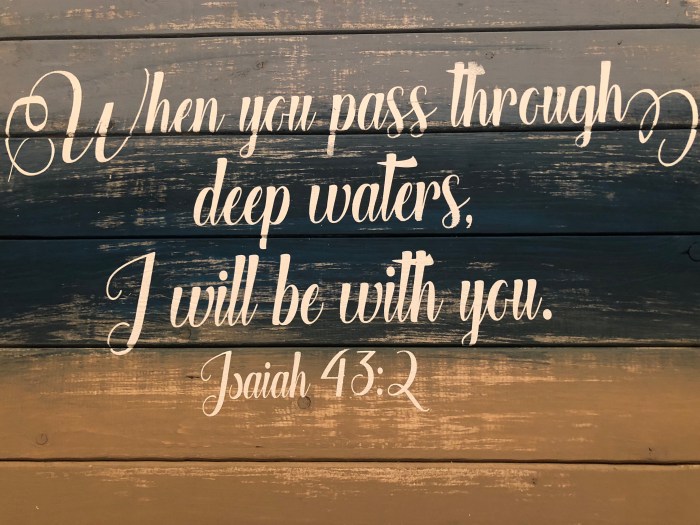 When you pass through
deep waters,
I will be with you.
Isaiah 43:2